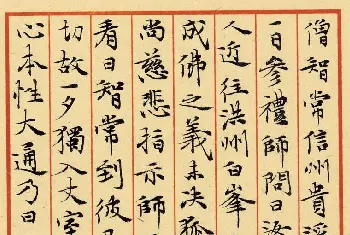 僧智常信州貴溪
一日參禮師問曰汝
人近往洪州白峯
成佛之義未決狐
尚慈悲指示師
看曰智常到彼
切故一夕獨入丈室
心本性大通乃曰